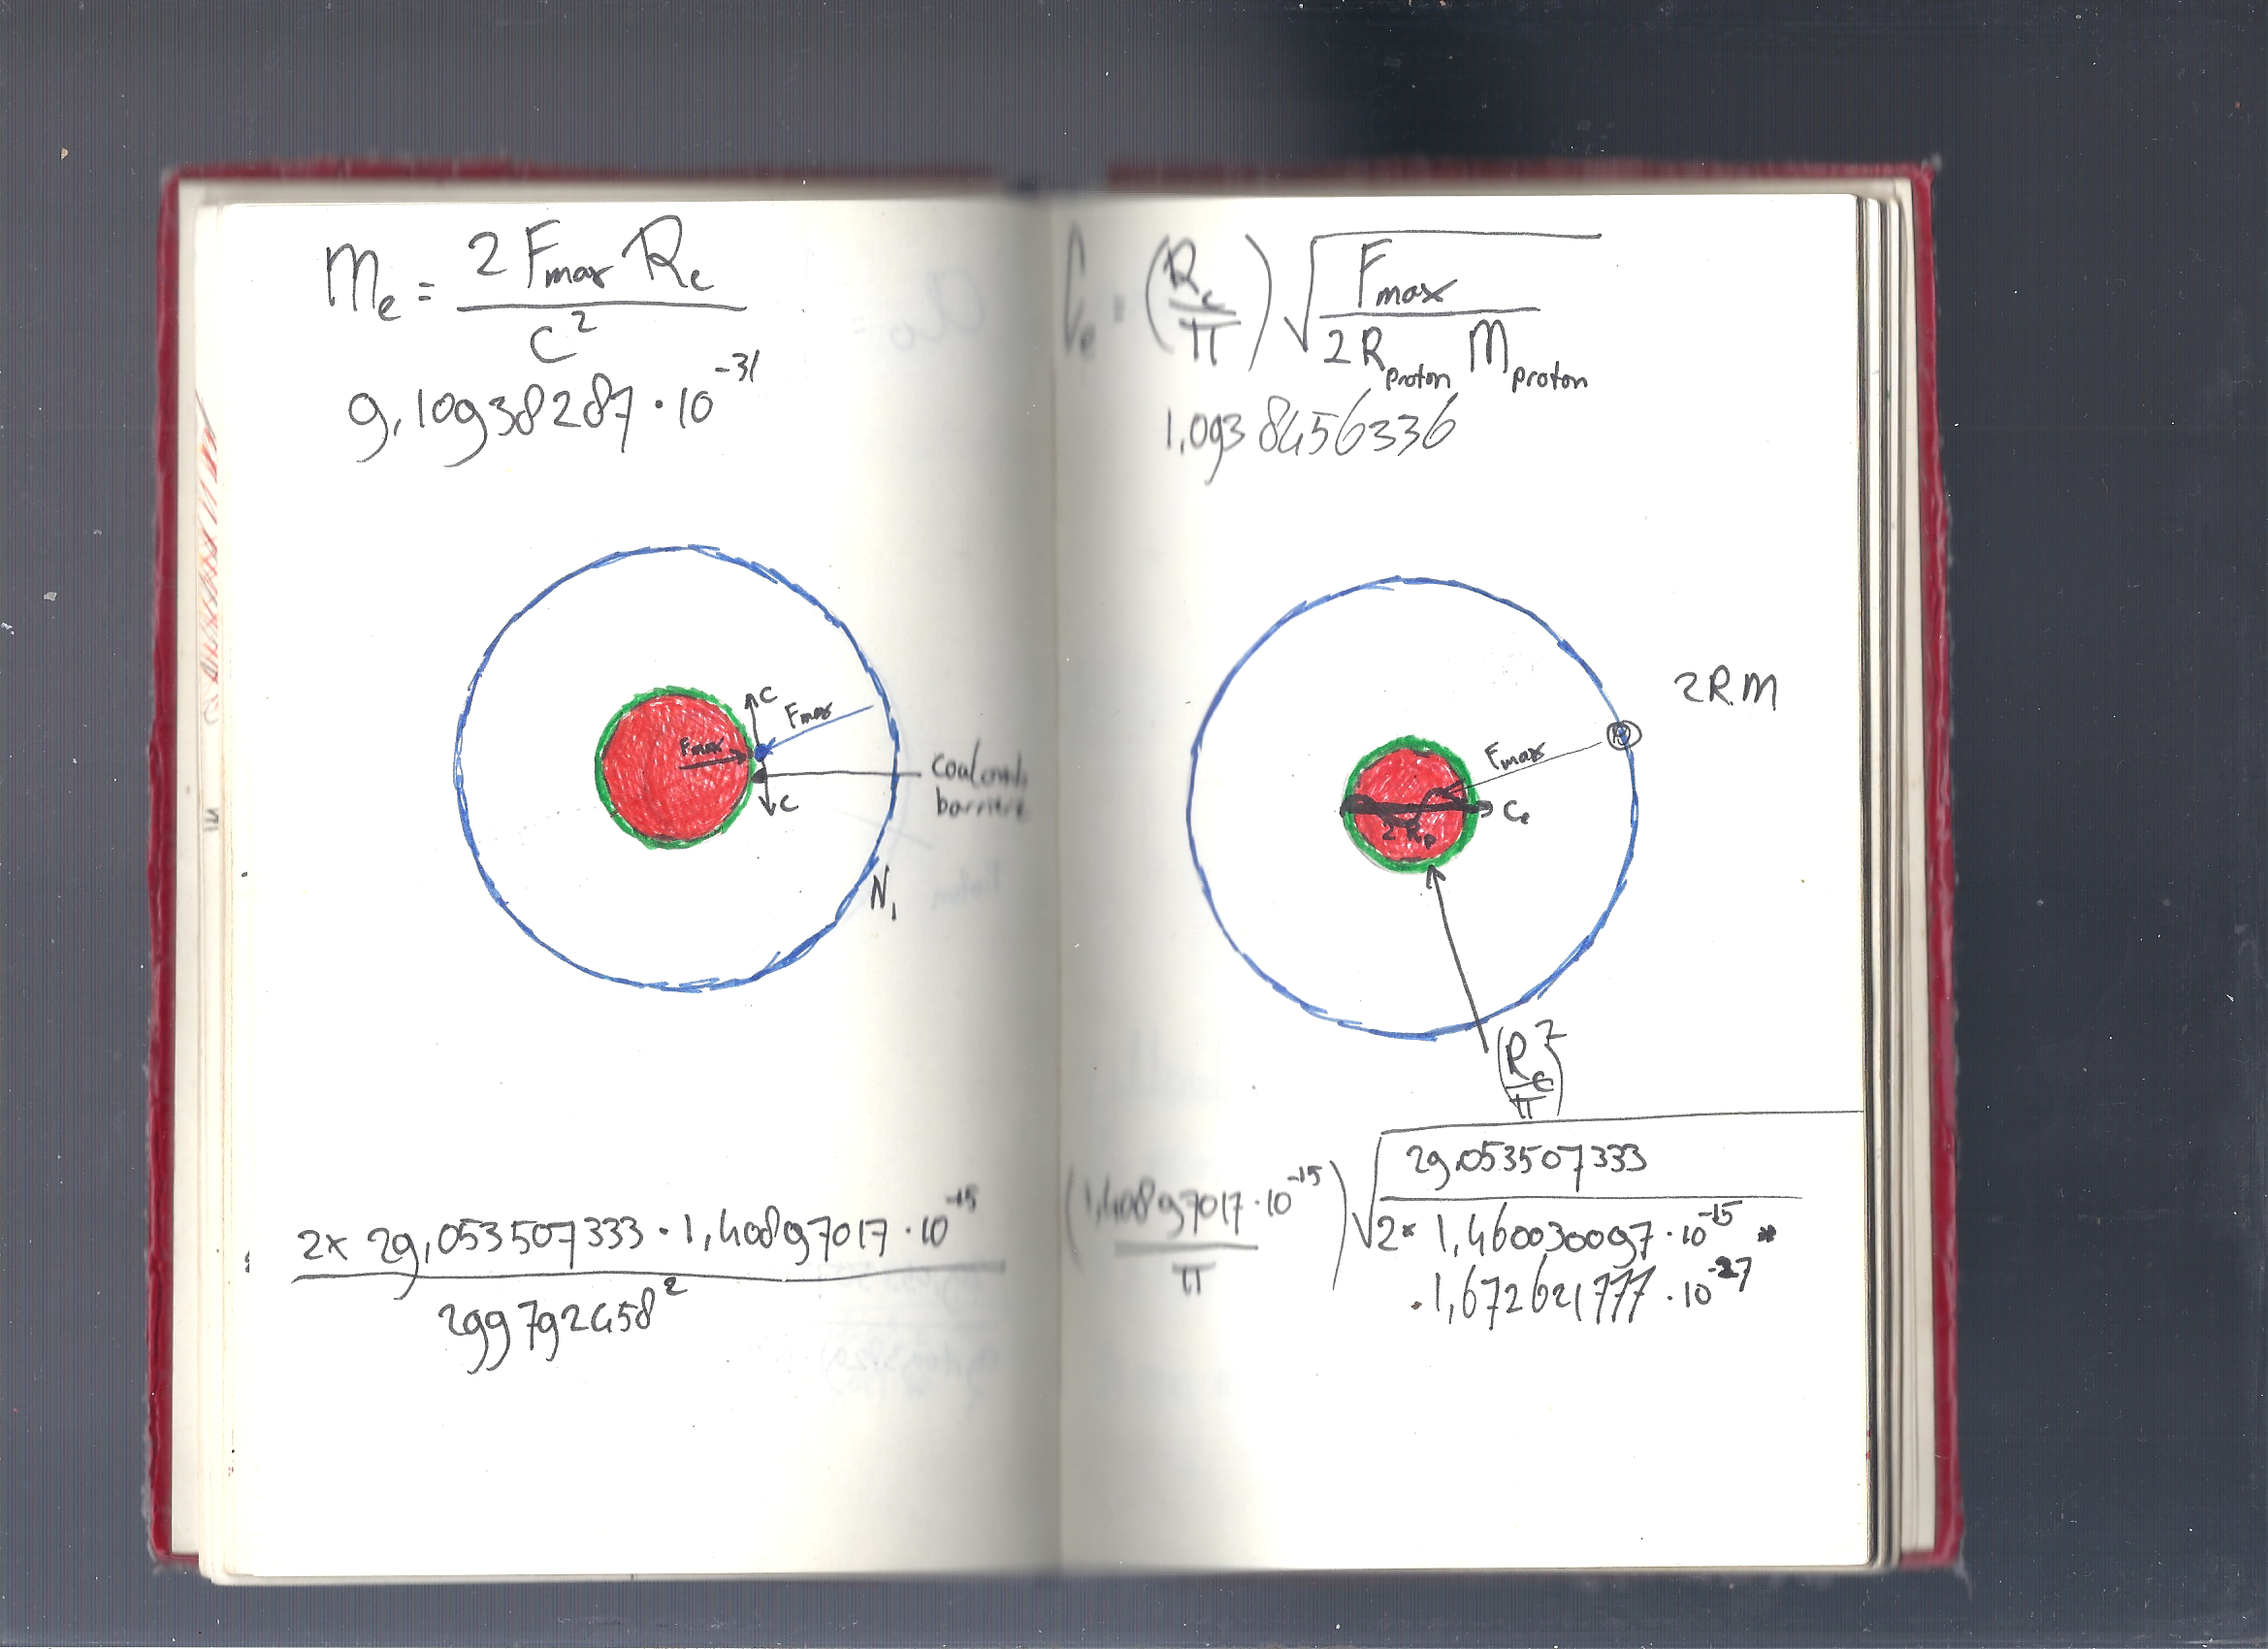 m_e = 2 F_max R_c / c²
9,10938287 · 10⁻³¹
c
F_max
F_max
Coulomb
barrière
c
N₁
2 × 29,053507333 · 1,40897017 · 10⁻¹⁵ / 299792458²
C_e = (R_c / π) √(F_max / 2 R_proton M_proton)
1,0938456336
2 R M
F_max
C_e
(R_c / π)²
(1,40897017 · 10⁻¹⁵ / π) √(29,053507333 / 2 * 1,460030097 · 10⁻¹⁵ *
· 1,672621777 · 10⁻²⁷)